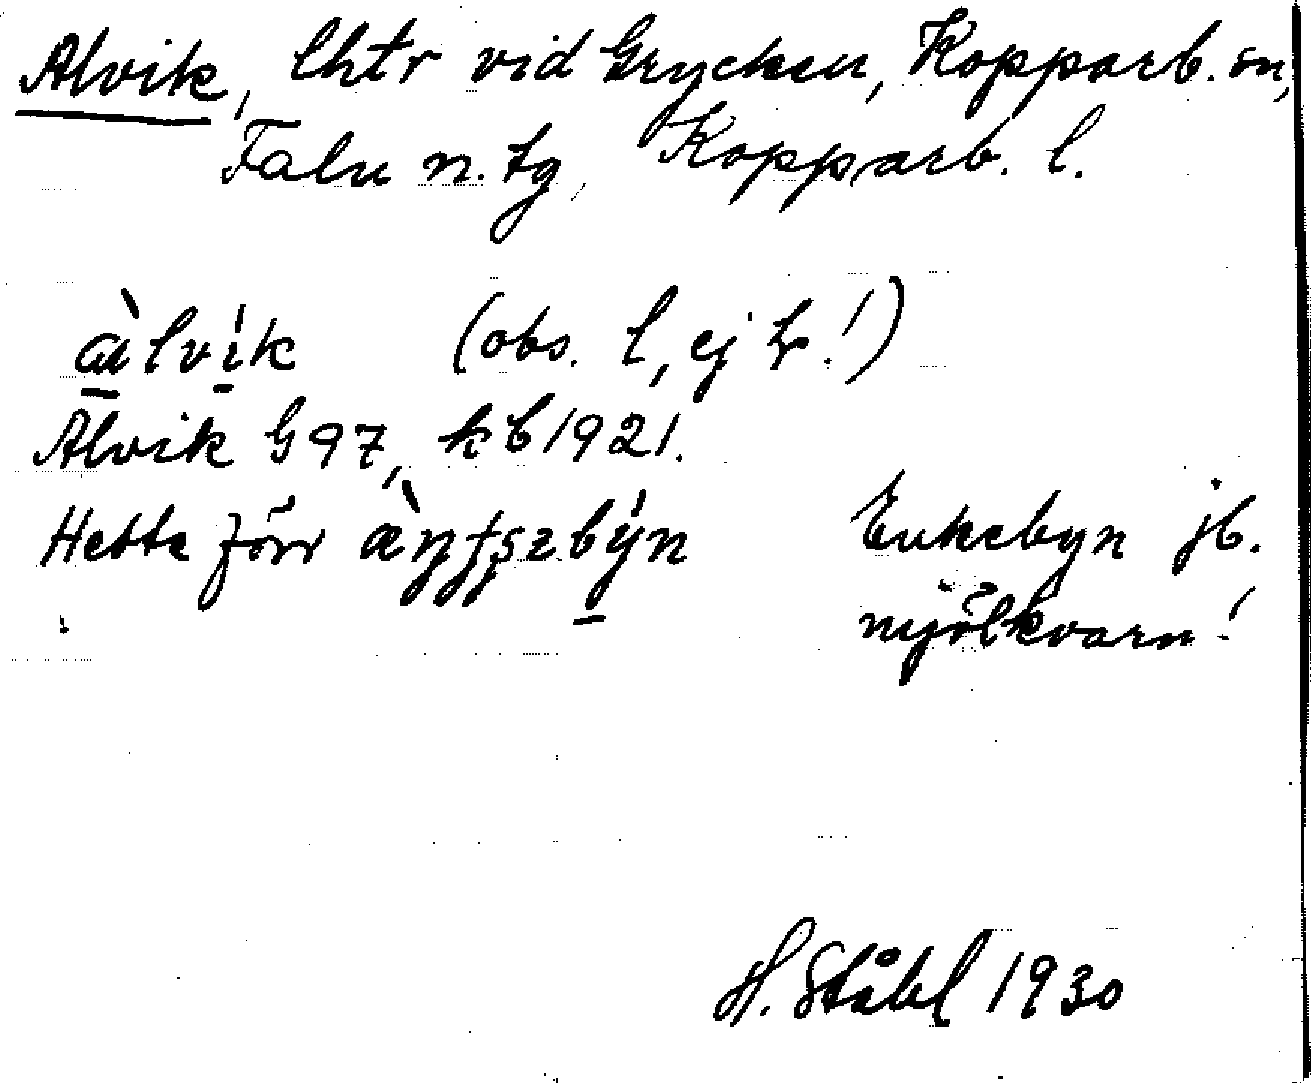 Alvik, lhtr vid Grycken, Kopparb. sn,
Falu n. tg, Kopparb. l.
àlvík (obs. l, ej !)
Alvik G 97, kb 1921.
Hette förr Enkebyn jb.
mjölkvarn!
H. Ståhl 1930